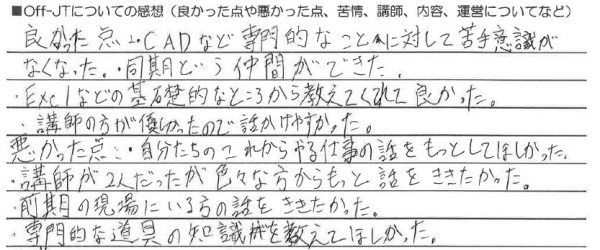 ■Off-JTについての感想（良かった点や悪かった点、苦情、講師、内容、運営についてなど）
良かった点:・CADなど専門的なことに対して苦手意識が
なくなった。・同期という仲間ができた。
・Exclなどの基礎的なところから教えてくれて良かった。
・講師の方が優しかったので話かけやすかった。
悪かった点:・自分たちのこれからやる仕事の話をもっとしてほしかった。
・講師が2人だったが色々な方からもっと話をききたかった。
・前期の現場にいる方の話をききたかった。
・専門的な道具の知識を教えてほしかった。